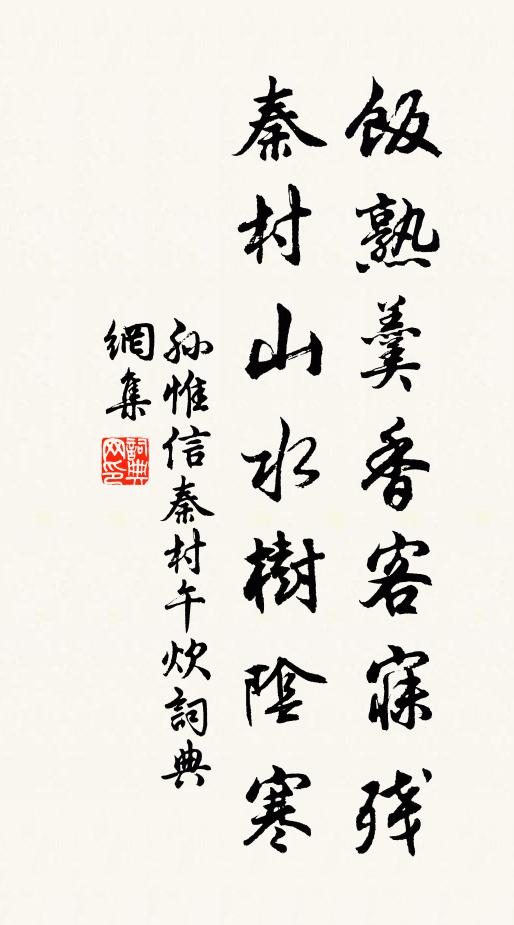 飯熟羹香客寐残
秦村山水樹陰寒
孙惟信秦村午炊詞典
網集
詞典
网印